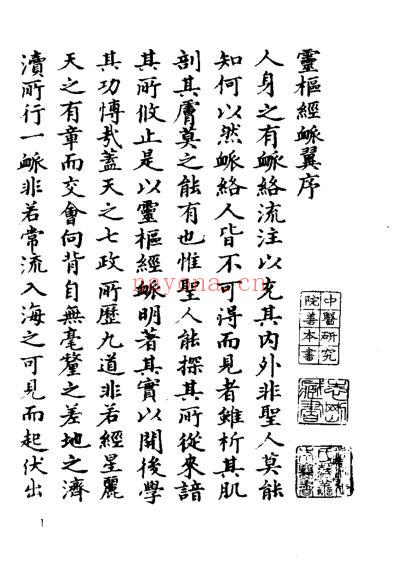 靈樞經脈翼序
人身之有脈絡流注以充其內外非聖人莫能
知何以然脈絡人皆不可得而見者雖析其肌
剖其膚莫之能有也惟聖人能探其所從來諳
其所攸止是以靈樞經脈明著其實以開後學
其功博哉蓋天之七政所歷九道非若經星麗
天之有章而交會向背自無毫釐之差地之濟
瀆所行一脈非若常流入海之可見而起伏出
中醫研究
院善本書
nayona.cn
1